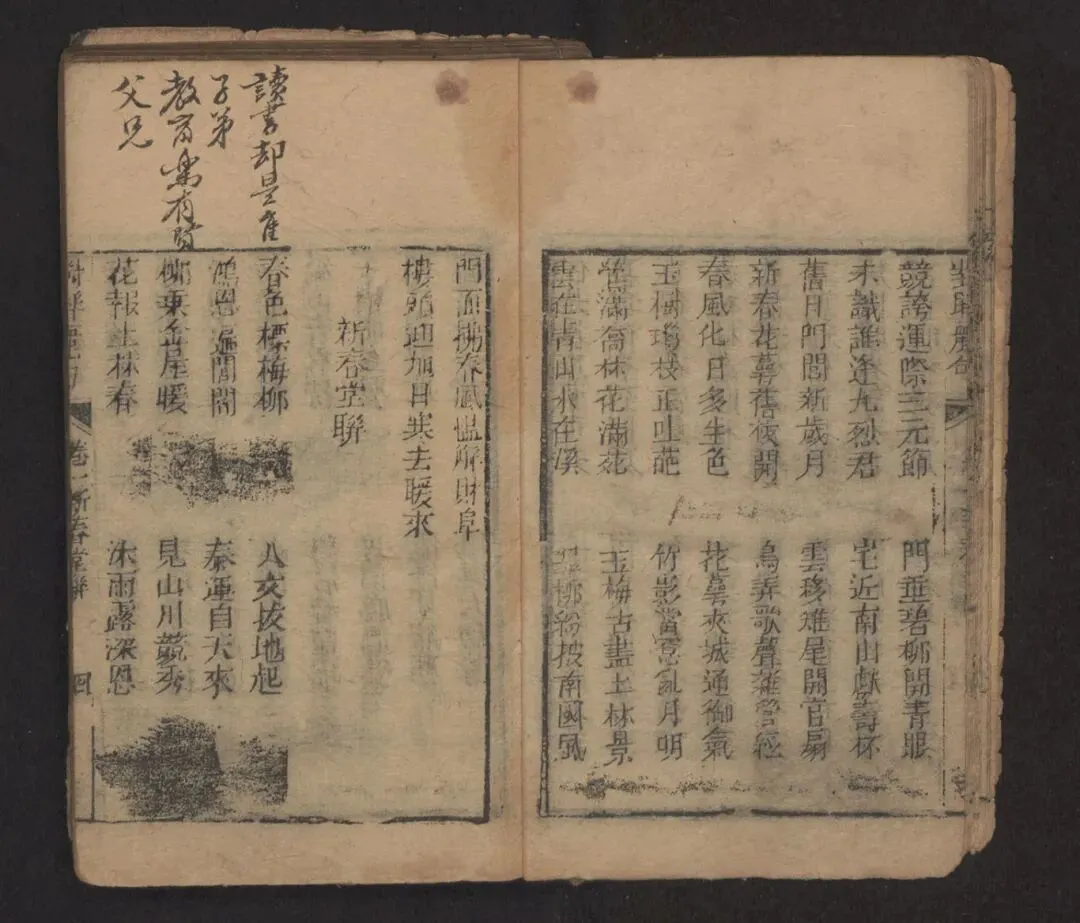 競誇運際三元節 門垂碧柳開青眼
未識誰逢九烈君 宅近南山獻壽杯
舊日門閭新歲月 雲移雉尾開宮扇
新春花萼舊後開 鳥弄歌聲雜管
春風化日多生色 花萼夾城通御氣
玉樹瓊枝正吐葩 竹影當窓亂月明
鶯滿喬林花滿苑 玉梅占盡上林景
雲在青山水在溪 柳紛披南國風
門面拂春風慍解財阜
樓頭迎旭日寒去暖來
新春堂聯
讀書却是隹
子弟
教育樂有賢
父兄
春色標梅柳 人文拔地起
鴻恩遍閭閻 泰運自天來
柳 屋暖 見山川競秀
花報上林春 沐雨露深恩
卷一新春堂聯 四